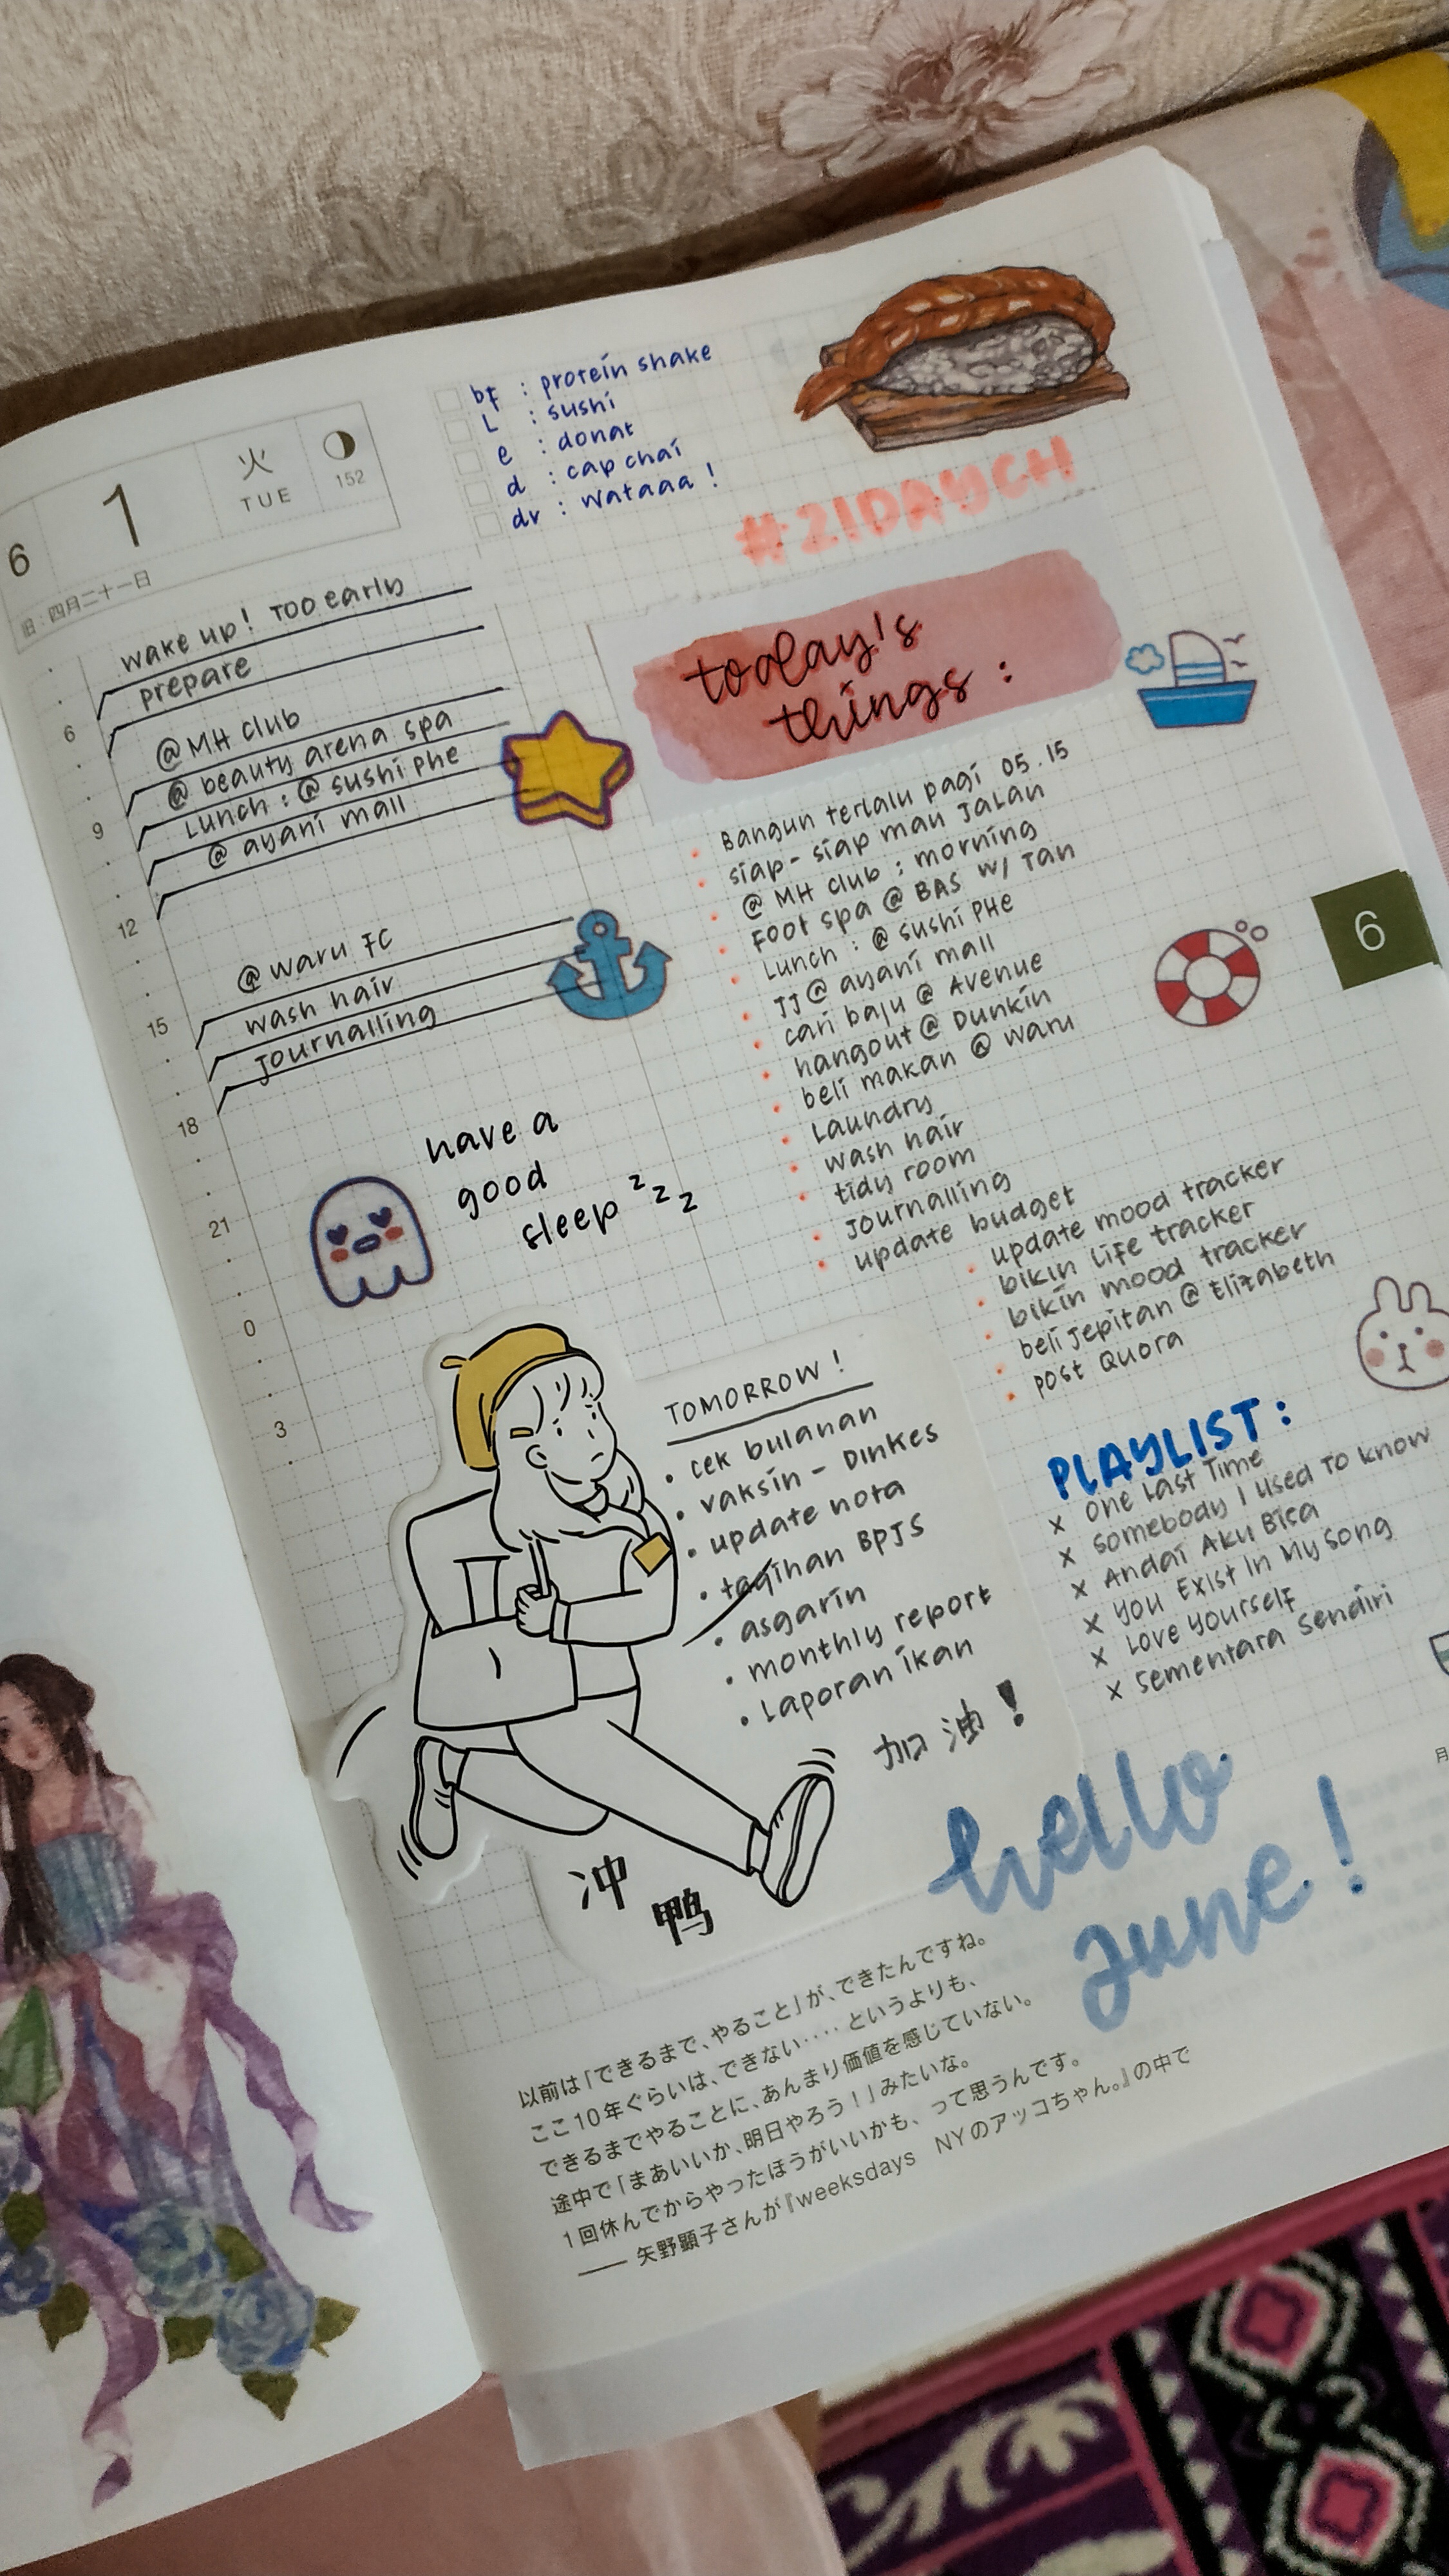 6
1
火
TUE
152
旧:四月二十一日
bf : protein shake
L : sushi
e : donat
d : cap chai
dr : wataaa !
#21DAYCH
wake up! Too early
prepare
@ MH club
@ beauty arena spa
Lunch : @ sushi phe
@ ayani mall
@ waru FC
wash hair
Journalling
6
9
12
15
18
21
0
3
have a
good
sleep z z z
today's
things :
Bangun terlalu pagi 05.15
siap-siap mau Jalan
@ MH club : morning
Foot spa @ BAS w/ Tan
Lunch : @ sushi PHE
JJ @ ayani mall
cari baju @ Avenue
hangout @ Dunkin
beli makan @ waru
Laundry
wash hair
tidy room
Journalling
update budget
update mood tracker
bikin life tracker
bikin mood tracker
beli jepitan @ Elizabeth
post Quora
6
TOMORROW !
• cek bulanan
• vaksin - Dinkes
• update nota
• tagihan BPJS
• asgarin
• monthly report
• Laporan ikan
加油!
冲
鸭
PLAYLIST :
x One Last Time
x Somebody I Used To Know
x Andai Aku Bisa
x You Exist In My Song
x Love Yourself
x Sementara Sendiri
hello
June!
月
以前は「できるまで、やること」が、できたんですね。
ここ10年ぐらいは、できない‥‥というよりも、
できるまでやることに、あんまり価値を感じていない。
途中で「まあいいか、明日やろう！」みたいな。
1回休んでからやったほうがいいかも、って思うんです。
—— 矢野顕子さんが『weeksdays NYのアッコちゃん。』の中で